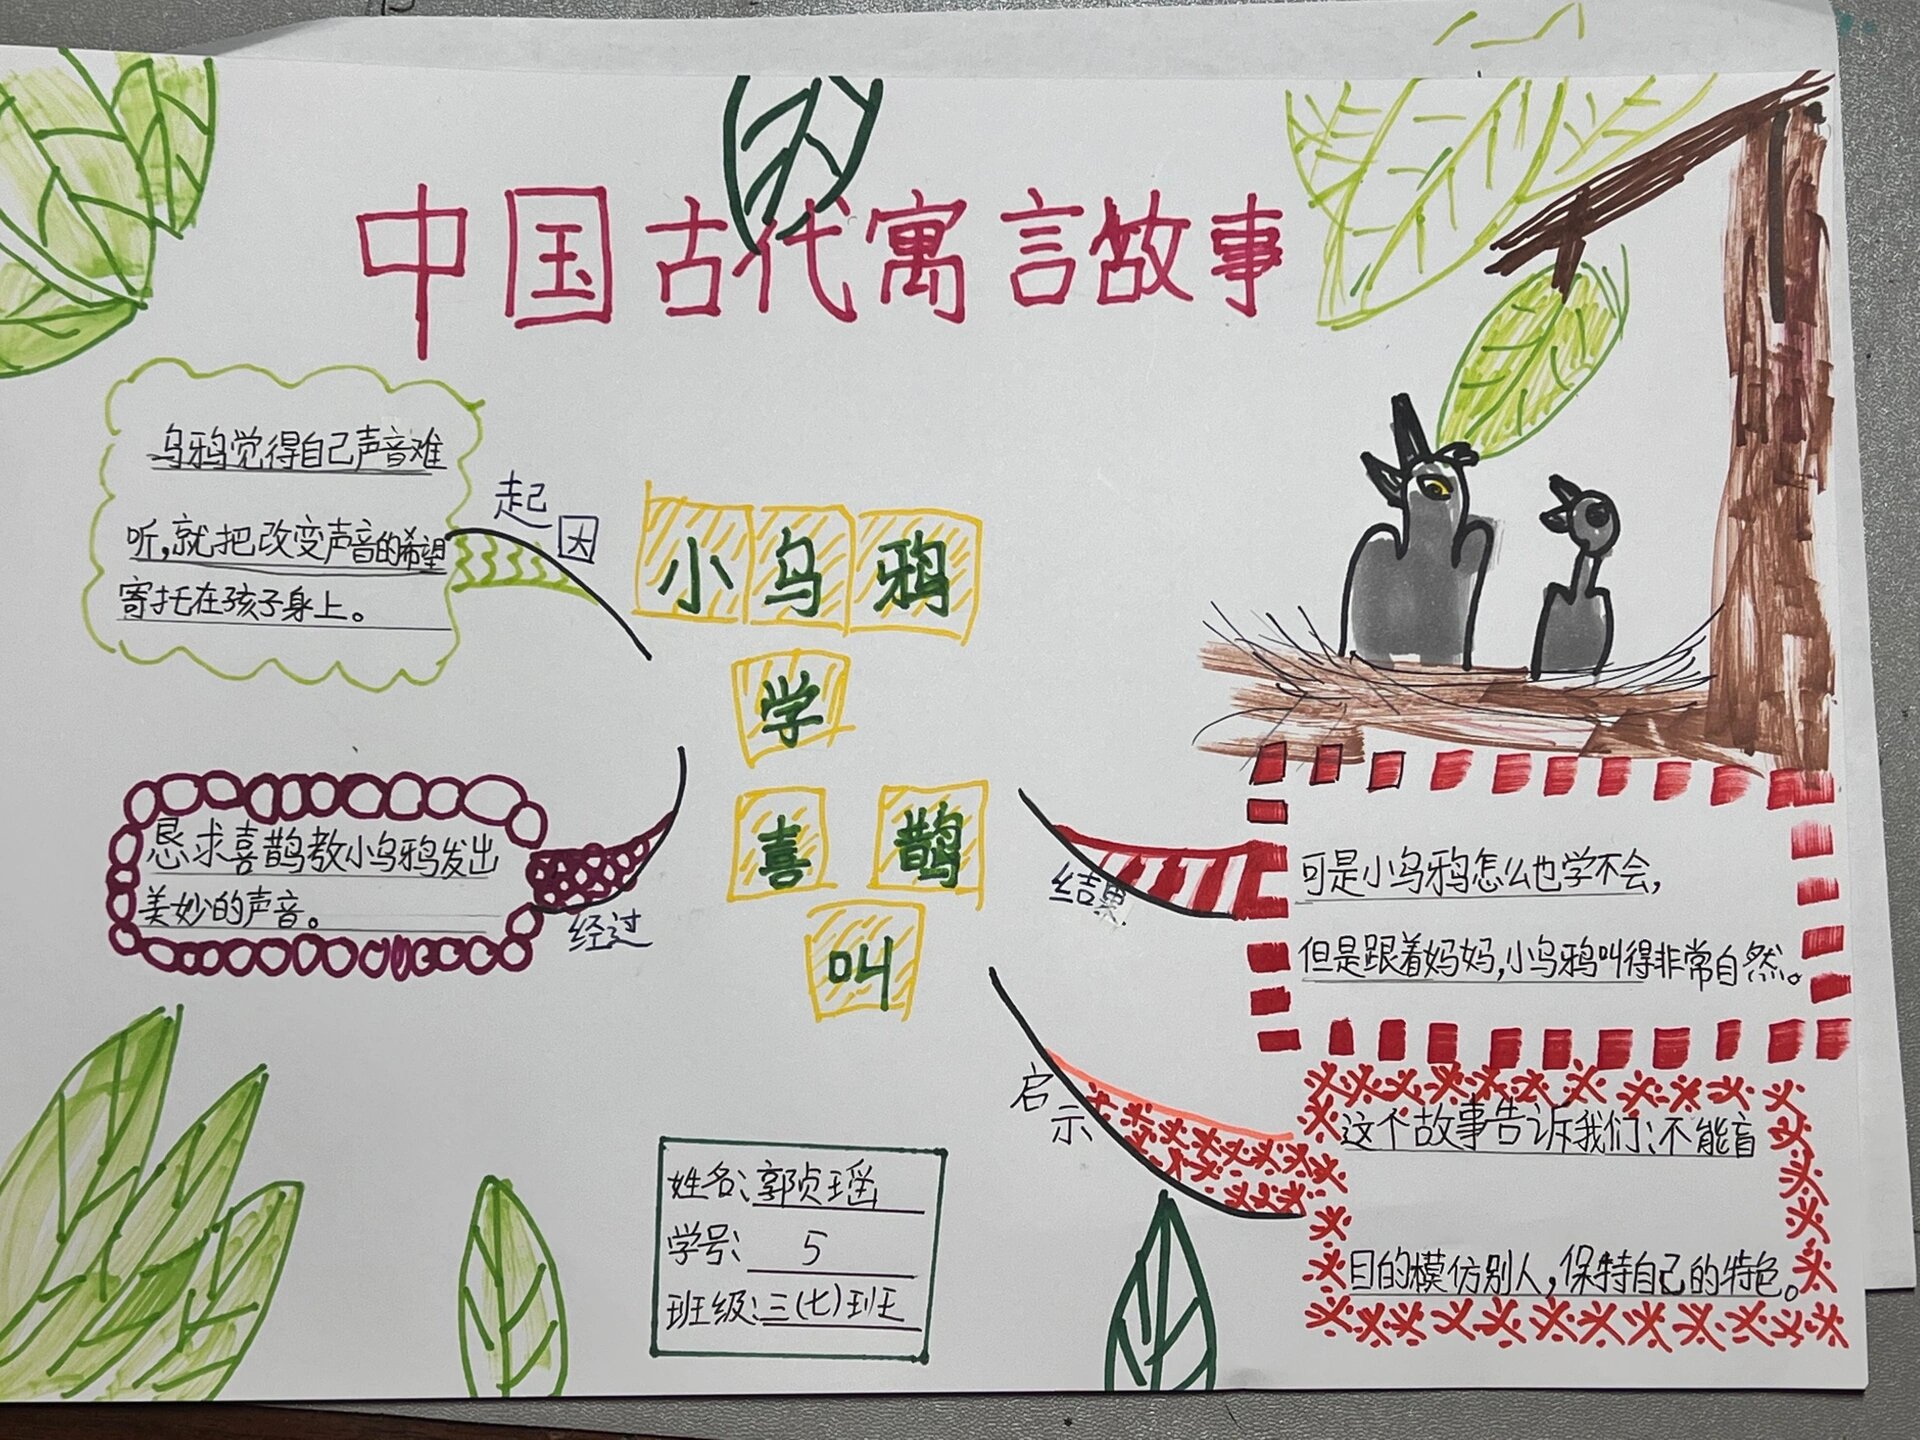 中国古代寓言故事
乌鸦觉得自己声音难
听,就把改变声音的希望
寄托在孩子身上。
起因
小乌鸦
学
喜鹊
叫
恳求喜鹊教小乌鸦发出
美妙的声音。
经过
结果
可是小乌鸦怎么也学不会,
但是跟着妈妈,小乌鸦叫得非常自然。
启示
这个故事告诉我们:不能盲
目的模仿别人,保持自己的特色。
姓名:郭贞瑶
学号:5
班级:三(七)班